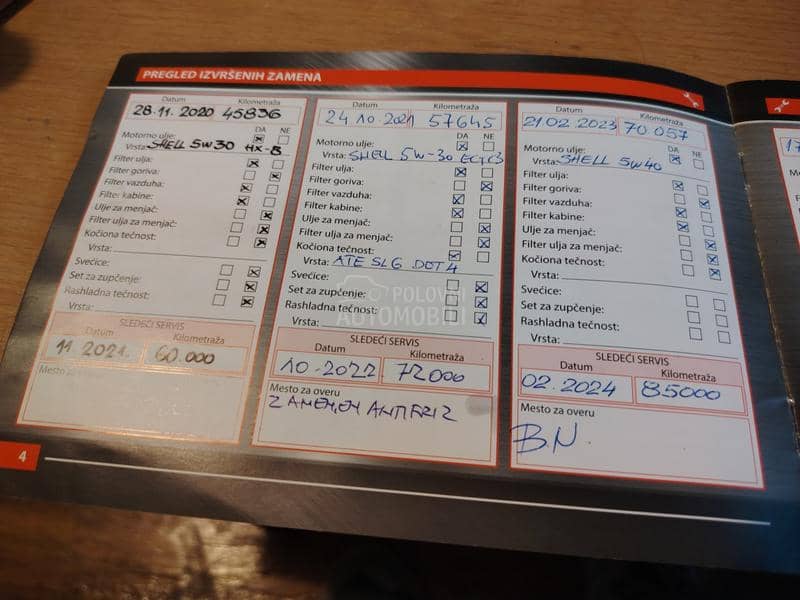 PREGLED IZVRŠENIH ZAMENA
Datum Kilometraža
28.11.2020 45836
DA NE
Motorno ulje:
Vrsta: SHELL 5W30 HX-8
Filter ulja:
Filter goriva:
Filter vazduha:
Filter kabine:
Ulje za menjač:
Filter ulja za menjač:
Kočiona tečnost:
Vrsta:
Svećice:
Set za zupčenje:
Rashladna tečnost:
Vrsta:
SLEDEĆI SERVIS
Datum Kilometraža
11.2021. 60.000
Mesto za
Datum Kilometraža
24 10.2021 57645
DA NE
Motorno ulje:
Vrsta: SHELL 5W-30 ECT C3
Filter ulja:
Filter goriva:
Filter vazduha:
Filter kabine:
Ulje za menjač:
Filter ulja za menjač:
Kočiona tečnost:
Vrsta: ATE SL6 DOT4
Svećice:
Set za zupčenje:
Rashladna tečnost:
Vrsta:
SLEDEĆI SERVIS
Datum Kilometraža
10.2022 72000
Mesto za overu
ZAMENEN ANTIFRIZ
Datum Kilometraža
21 02.2023 70 057
DA NE
Motorno ulje:
Vrsta: SHELL 5W40
Filter ulja:
Filter goriva:
Filter vazduha:
Filter kabine:
Ulje za menjač:
Filter ulja za menjač:
Kočiona tečnost:
Vrsta:
Svećice:
Set za zupčenje:
Rashladna tečnost:
Vrsta:
SLEDEĆI SERVIS
Datum Kilometraža
02.2024 85000
Mesto za overu
B.N.
POLOVNI
AUTOMOBILI
4